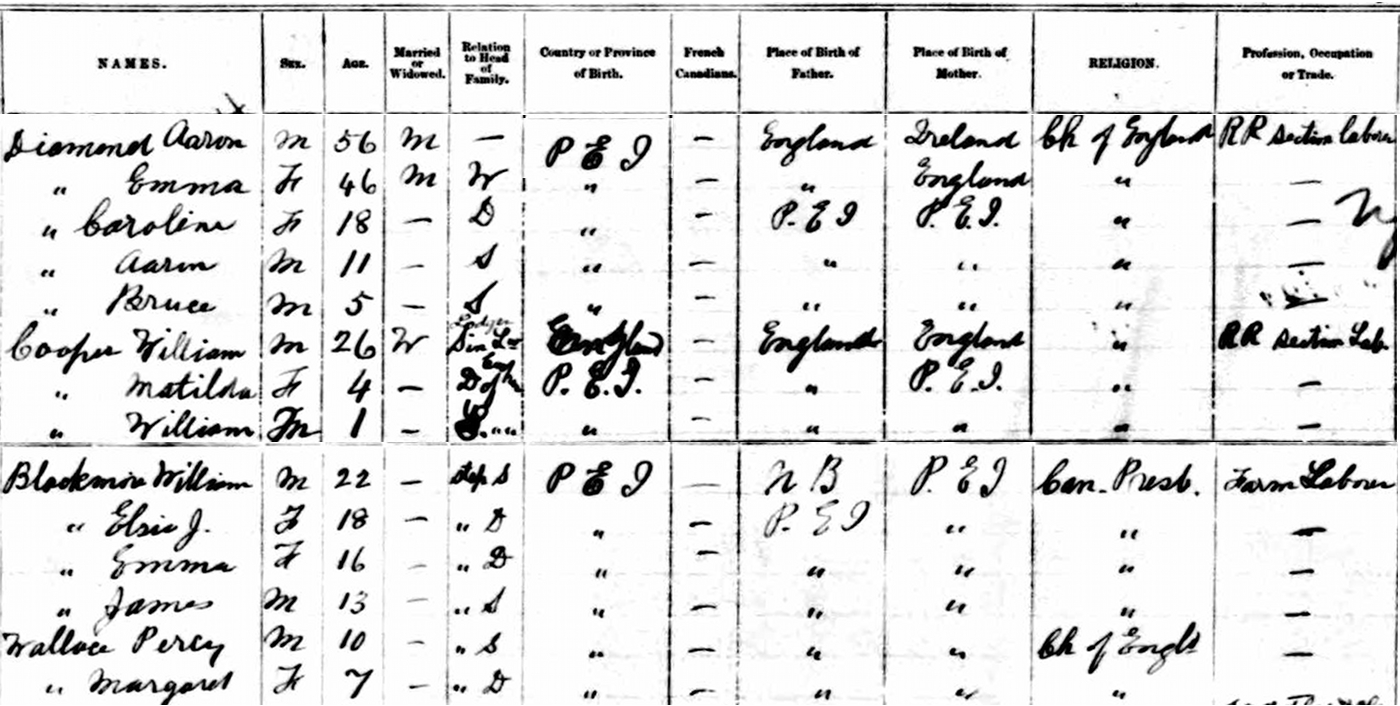 NAMES. Sex. Age. Married or Widowed. Relation to Head of Family. Country or Province of Birth. French Canadians. Place of Birth of Father. Place of Birth of Mother. RELIGION. Profession, Occupation or Trade.
Diamond Aaron M 56 M — P E I — England Ireland Ch of England RR section labour
" Emma F 46 M W " — " England " —
" Caroline F 18 — D " — P. E I P. E. I. " —
" Aaron M 11 — S " — " " " —
" Bruce M 5 — S " — " " "
Cooper William M 26 W Lodger Son Law England — England England " RR section Lab.
" Matilda F 4 — D of P. E. I. — " P. E. I. " —
" William M 1 — " — " " " —
Blackmore William M 22 — step S P E I — N B P. E I Can. Presb. Farm Labour
" Elsie J. F 18 — " D " — P. E I " " —
" Emma F 16 — " D " — " " " —
" James M 13 — " S " — " " " —
Wallace Percy M 10 — " S " — " " Ch of Engld —
" Margaret F 7 — " D " — " " " —